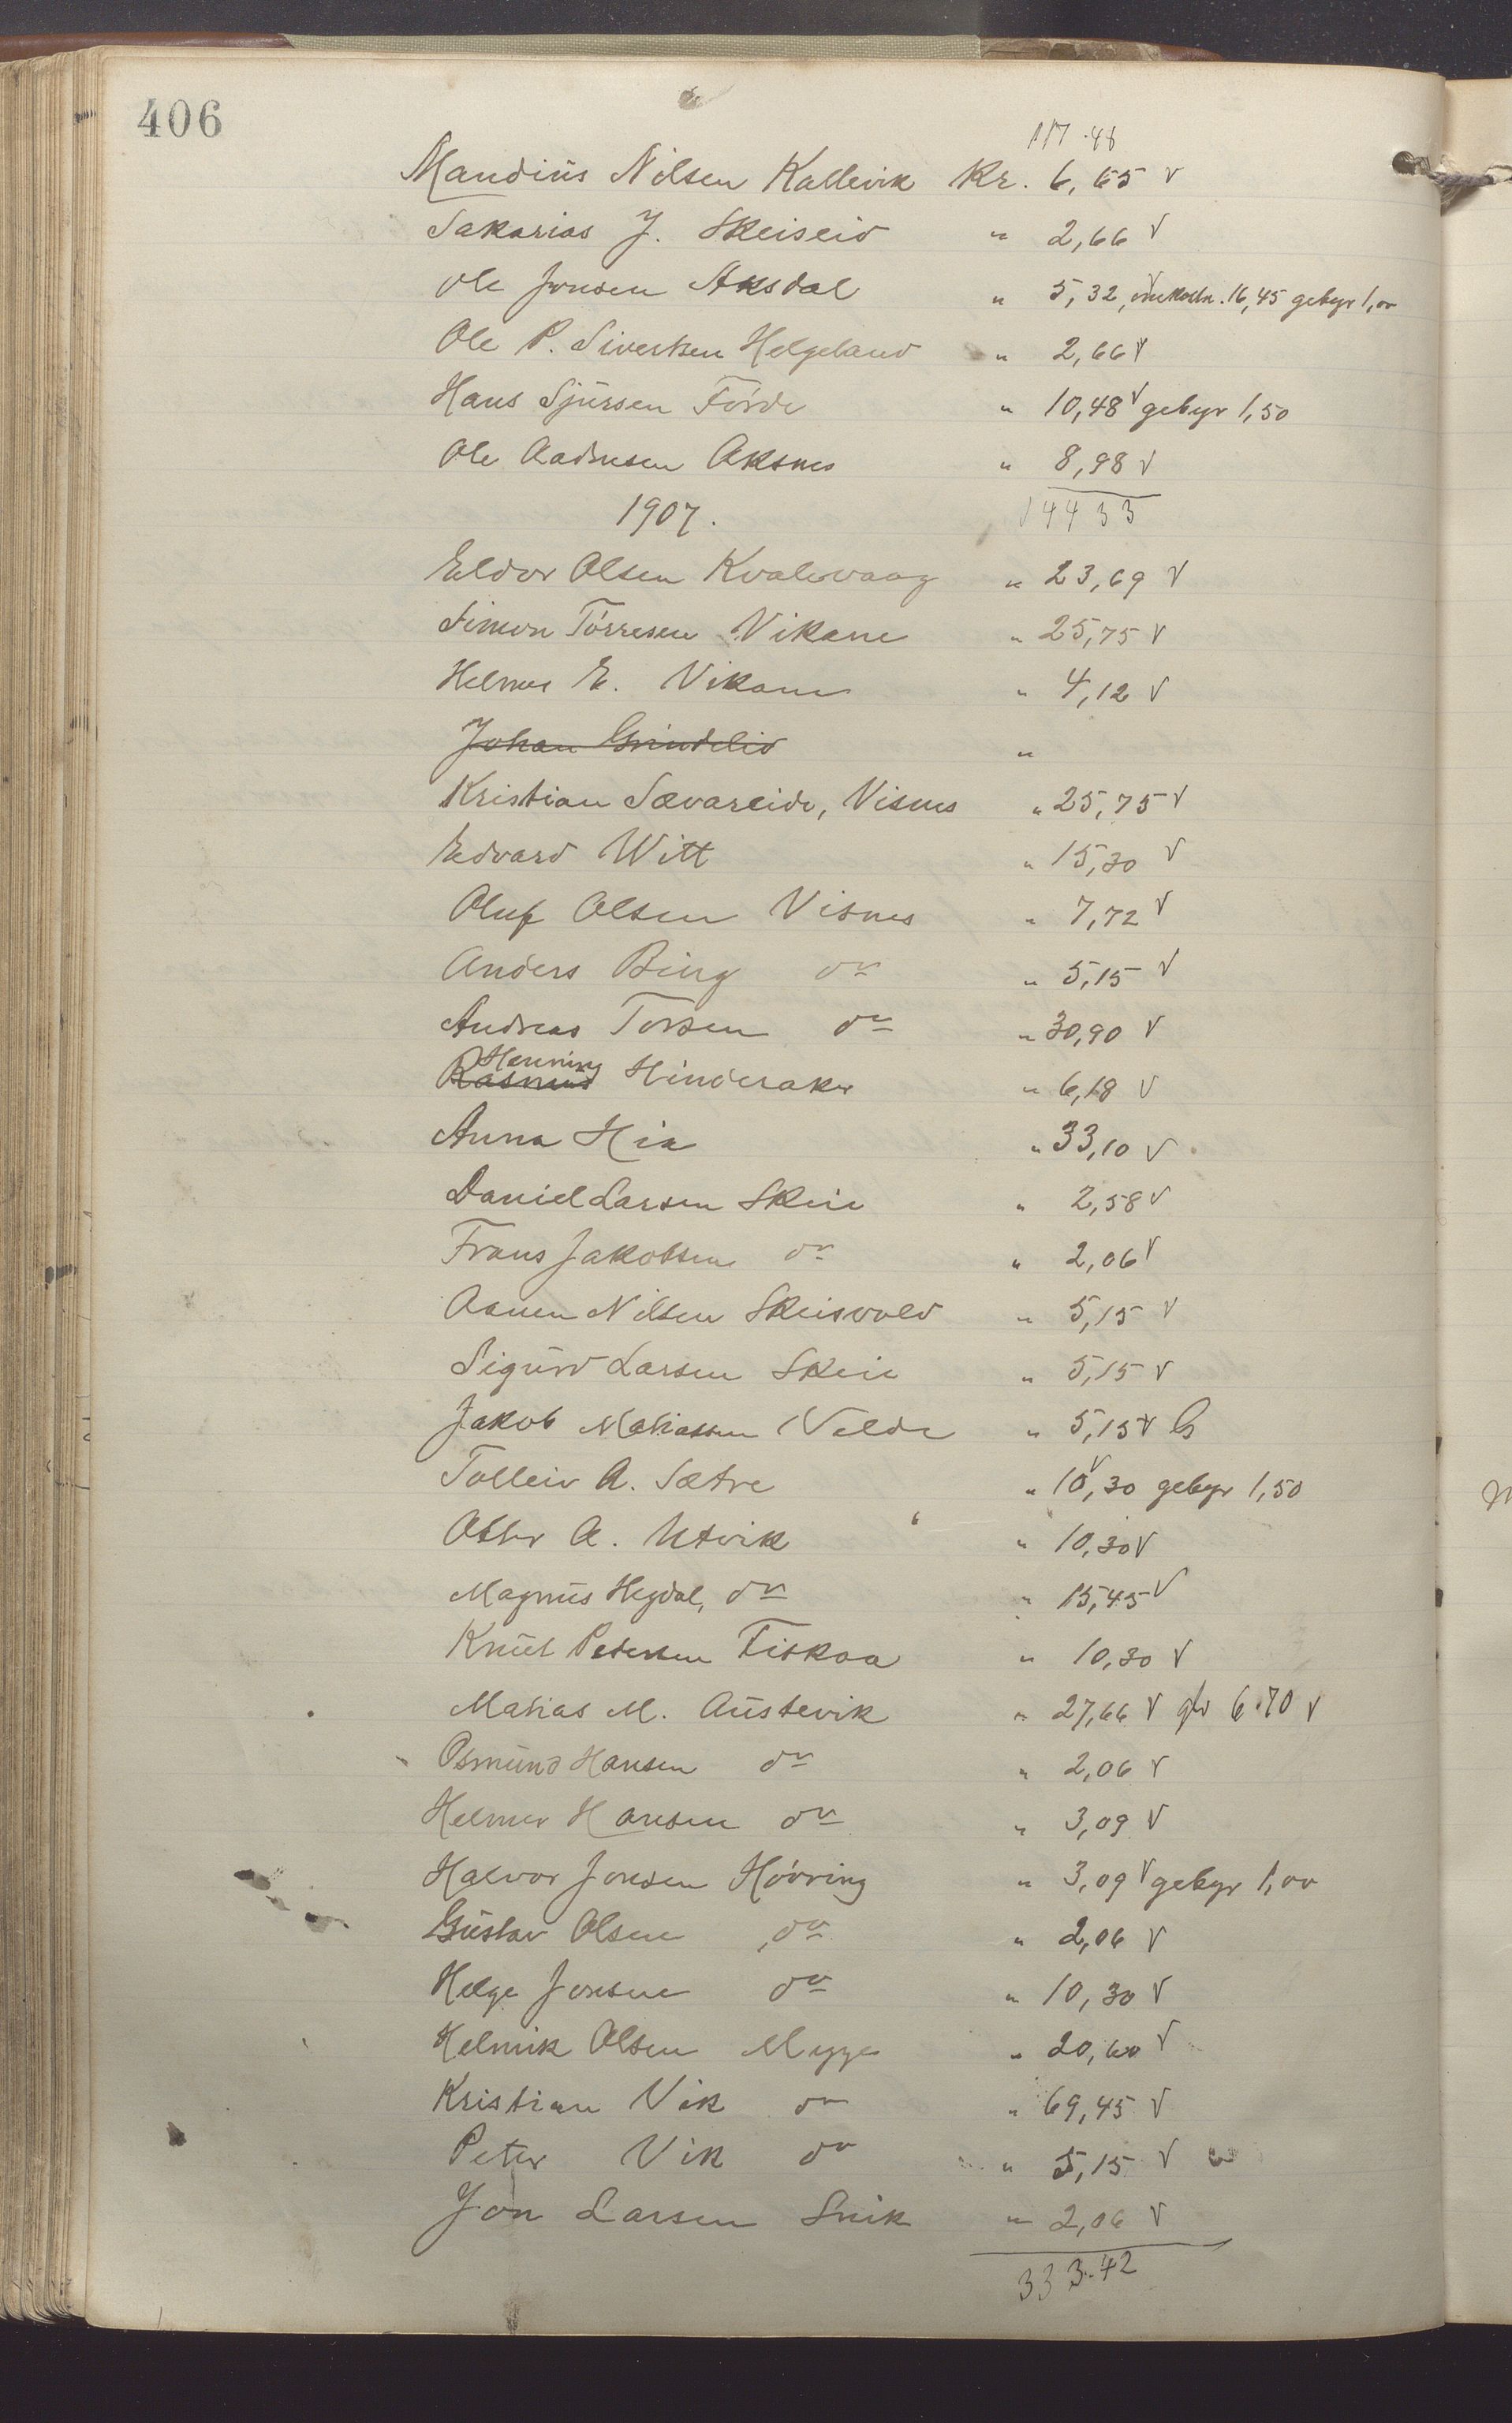 406
117.48
Mandius Nilsen Kallevik Kr. 6,65 V
Sakarias J. Skeiseid " 2,66 V
Ole Jonsen Aksdal " 5,32, V 16,45 gebyr 1,00
Ole P. Sivertsen Helgeland " 2,66 V
Hans Sjursen Förde " 10,48 V gebyr 1,50
Ole Aadnesen Aksnes " 8,98 V
1907. 144 33
Eldor Olsen Kvalevaag " 23,69 V
Simon Törresen Vikane " 25,75 V
Helmer E. Vikane " 4,12 V
Johan Grindeliv "
Kristian Sævareide, Visnes " 25,75 V
Edvard Witt " 15,30 V
Oluf Olsen Visnes " 7,72 V
Anders Bing do " 5,15 V
Andreas Torsen do " 30,90 V
Henning
Rasmus Hinderaker " 6,18 V
Anna Hia " 33,10 V
Daniel Larsen Skeie " 2,58 V
Frans Jakobsen do " 2,06 V
Aanen Nilsen Skeisvold " 5,15 V
Sigurd Larsen Skeie " 5,15 V
Jakob Matiassen Velde " 5,15 V
Tolleiv A. Sætre " 10,30 V gebyr 1,50
Otter A. Utvik " 10,30 V
Magnus Hegdal, do " 15,45 V
Knut Petersen Fiskaa " 10,30 V
Matias M. Austevik " 27,66 V 6.70 V
Osmund Hansen do " 2,06 V
Helmer Hansen do " 3,09 V
Halvor Jonsen Hövring " 3,09 V gebyr 1,00
Gustav Olsen do " 2,06 V
Helge Jonsen do " 10,30 V
Helmik Olsen Myge " 20,60 V
Kristian Vik do " 69,45 V
Peter Vik do " 5,15 V
Jon Larsen Snik " 2,06 V
333.42